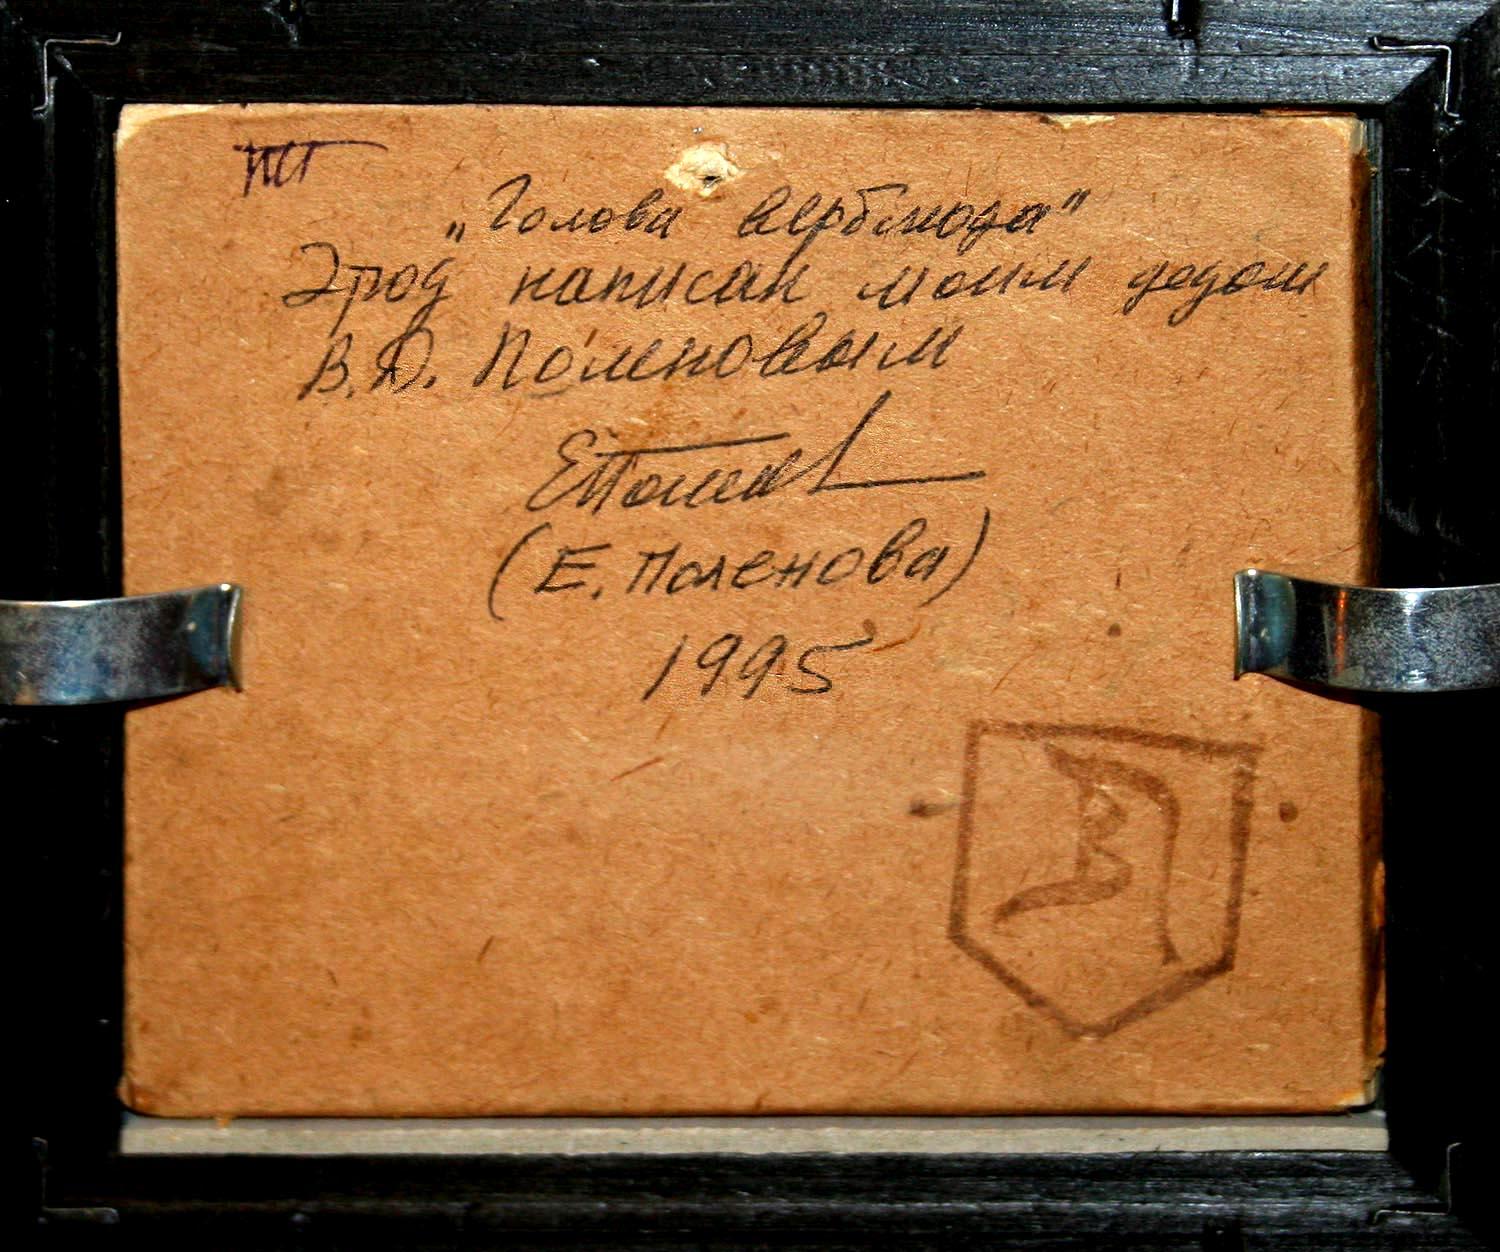 „Голова верблюда"
Этюд написан моим дедом
В.Д. Поленовым
ЕПолен
(Е. Поленова)
1995